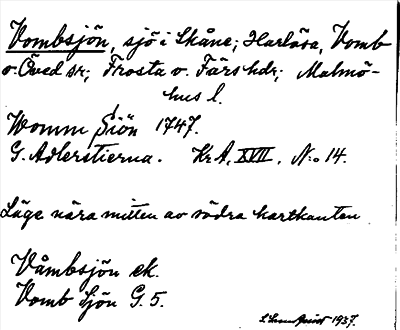 Vombsjön, sjö i Skåne; Harlösa, Vomb
o. Öved sn; Frosta o. Färs hdr; Malmö-
hus l.
Womm Siön 1747.
G. Adlerstierna. Kr. A, XVII, N:o 14.
Läge nära mitten av södra kartkanten
Våmbsjön ek.
Vomb sjön G. 5.
1937.